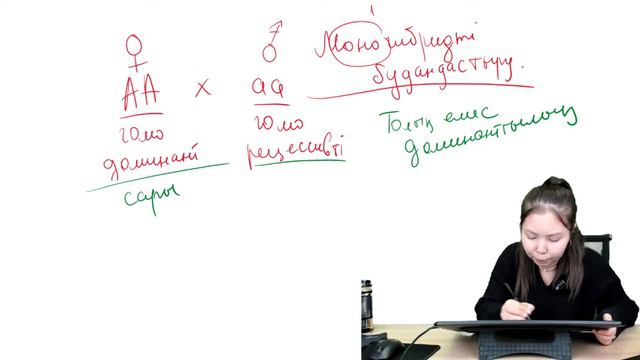 ♀ ♂
1
Моногибридті
будандастыру.
АА х аа
гомо гомо
доминант рецессивті
сары
Толық емес
доминанттылық